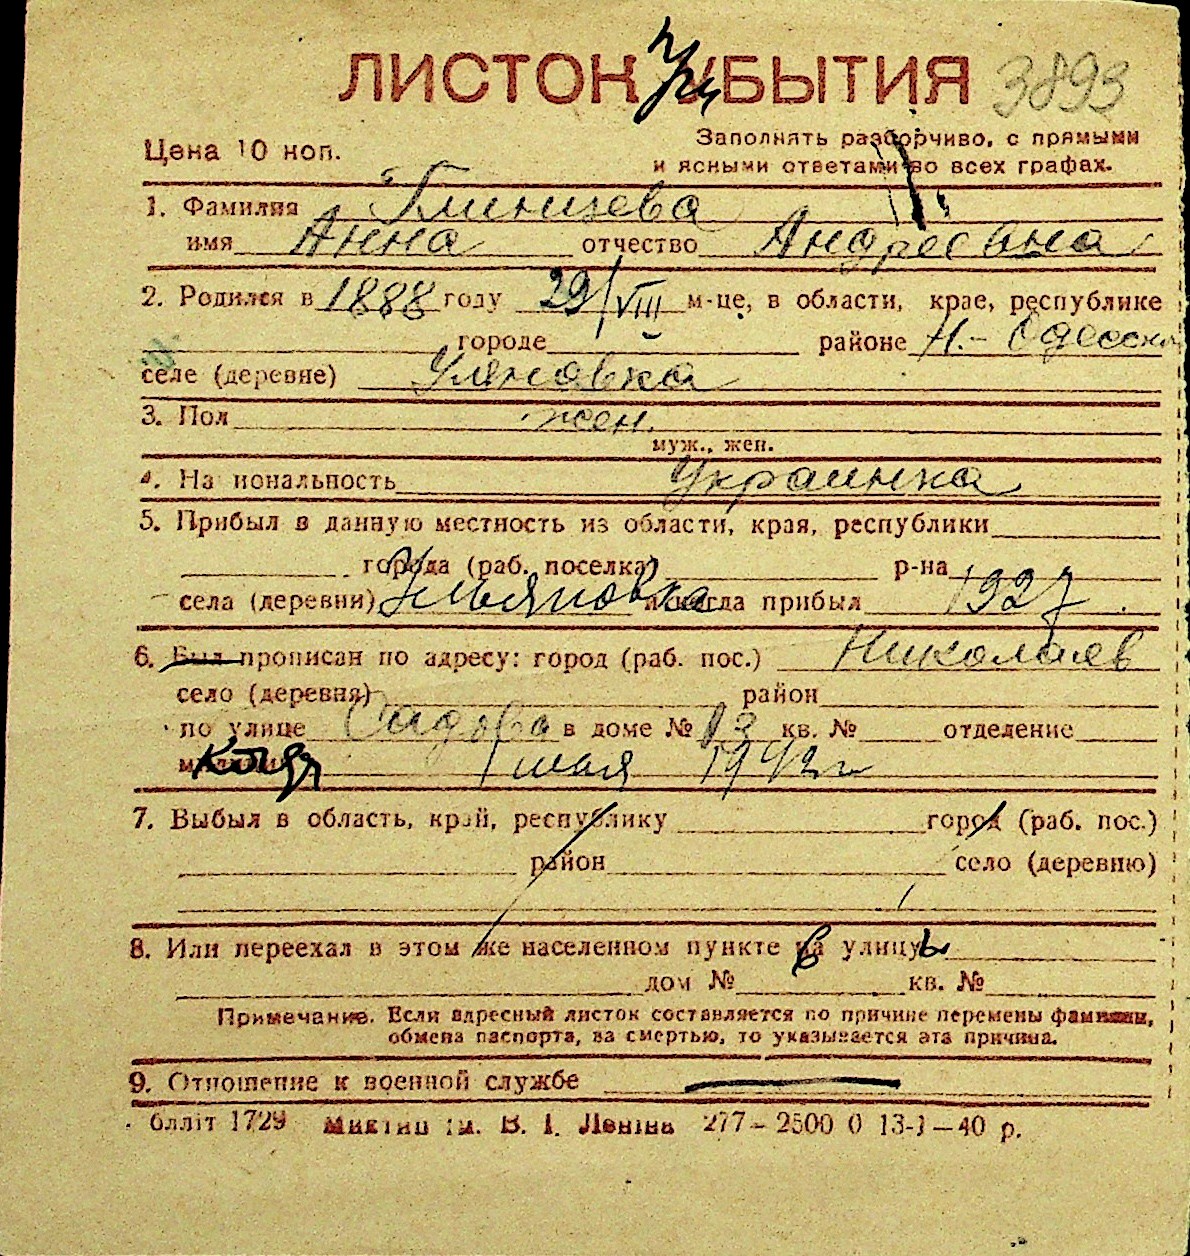 ЛИСТОК УБЫТИЯ 3893
Цена 10 коп.
Заполнять разборчиво, с прямыми
и ясными ответами во всех графах.
1. Фамилия
имя Анна отчество Андреевна
2. Родился в 1888 году 29/VIII м-це, в области, крае, республике
городе районе Н.-Одесск
селе (деревне) Уляновка
3. Пол жен.
муж., жен.
4. На иональность Украинка
5. Прибыл в данную местность из области, края, республики
города (раб. поселка) р-на
села (деревни) Ульяновка и когда прибыл 1927
6. Был прописан по адресу: город (раб. пос.) Николаев
село (деревня) район
по улице Садова в доме № 13 кв. № отделение
1 мая 1942 г
7. Выбыл в область, край, республику город (раб. пос.)
район село (деревню)
8. Или переехал в этом же населенном пункте на улицу
дом № кв. №
Примечание. Если адресный листок составляется по причине перемены фамилии,
обмена паспорта, за смертью, то указывается эта причина.
9. Отношение к военной службе
блліт 1729 Миктип ім. В. І. Леніна 277-2500 0 13-І-40 р.